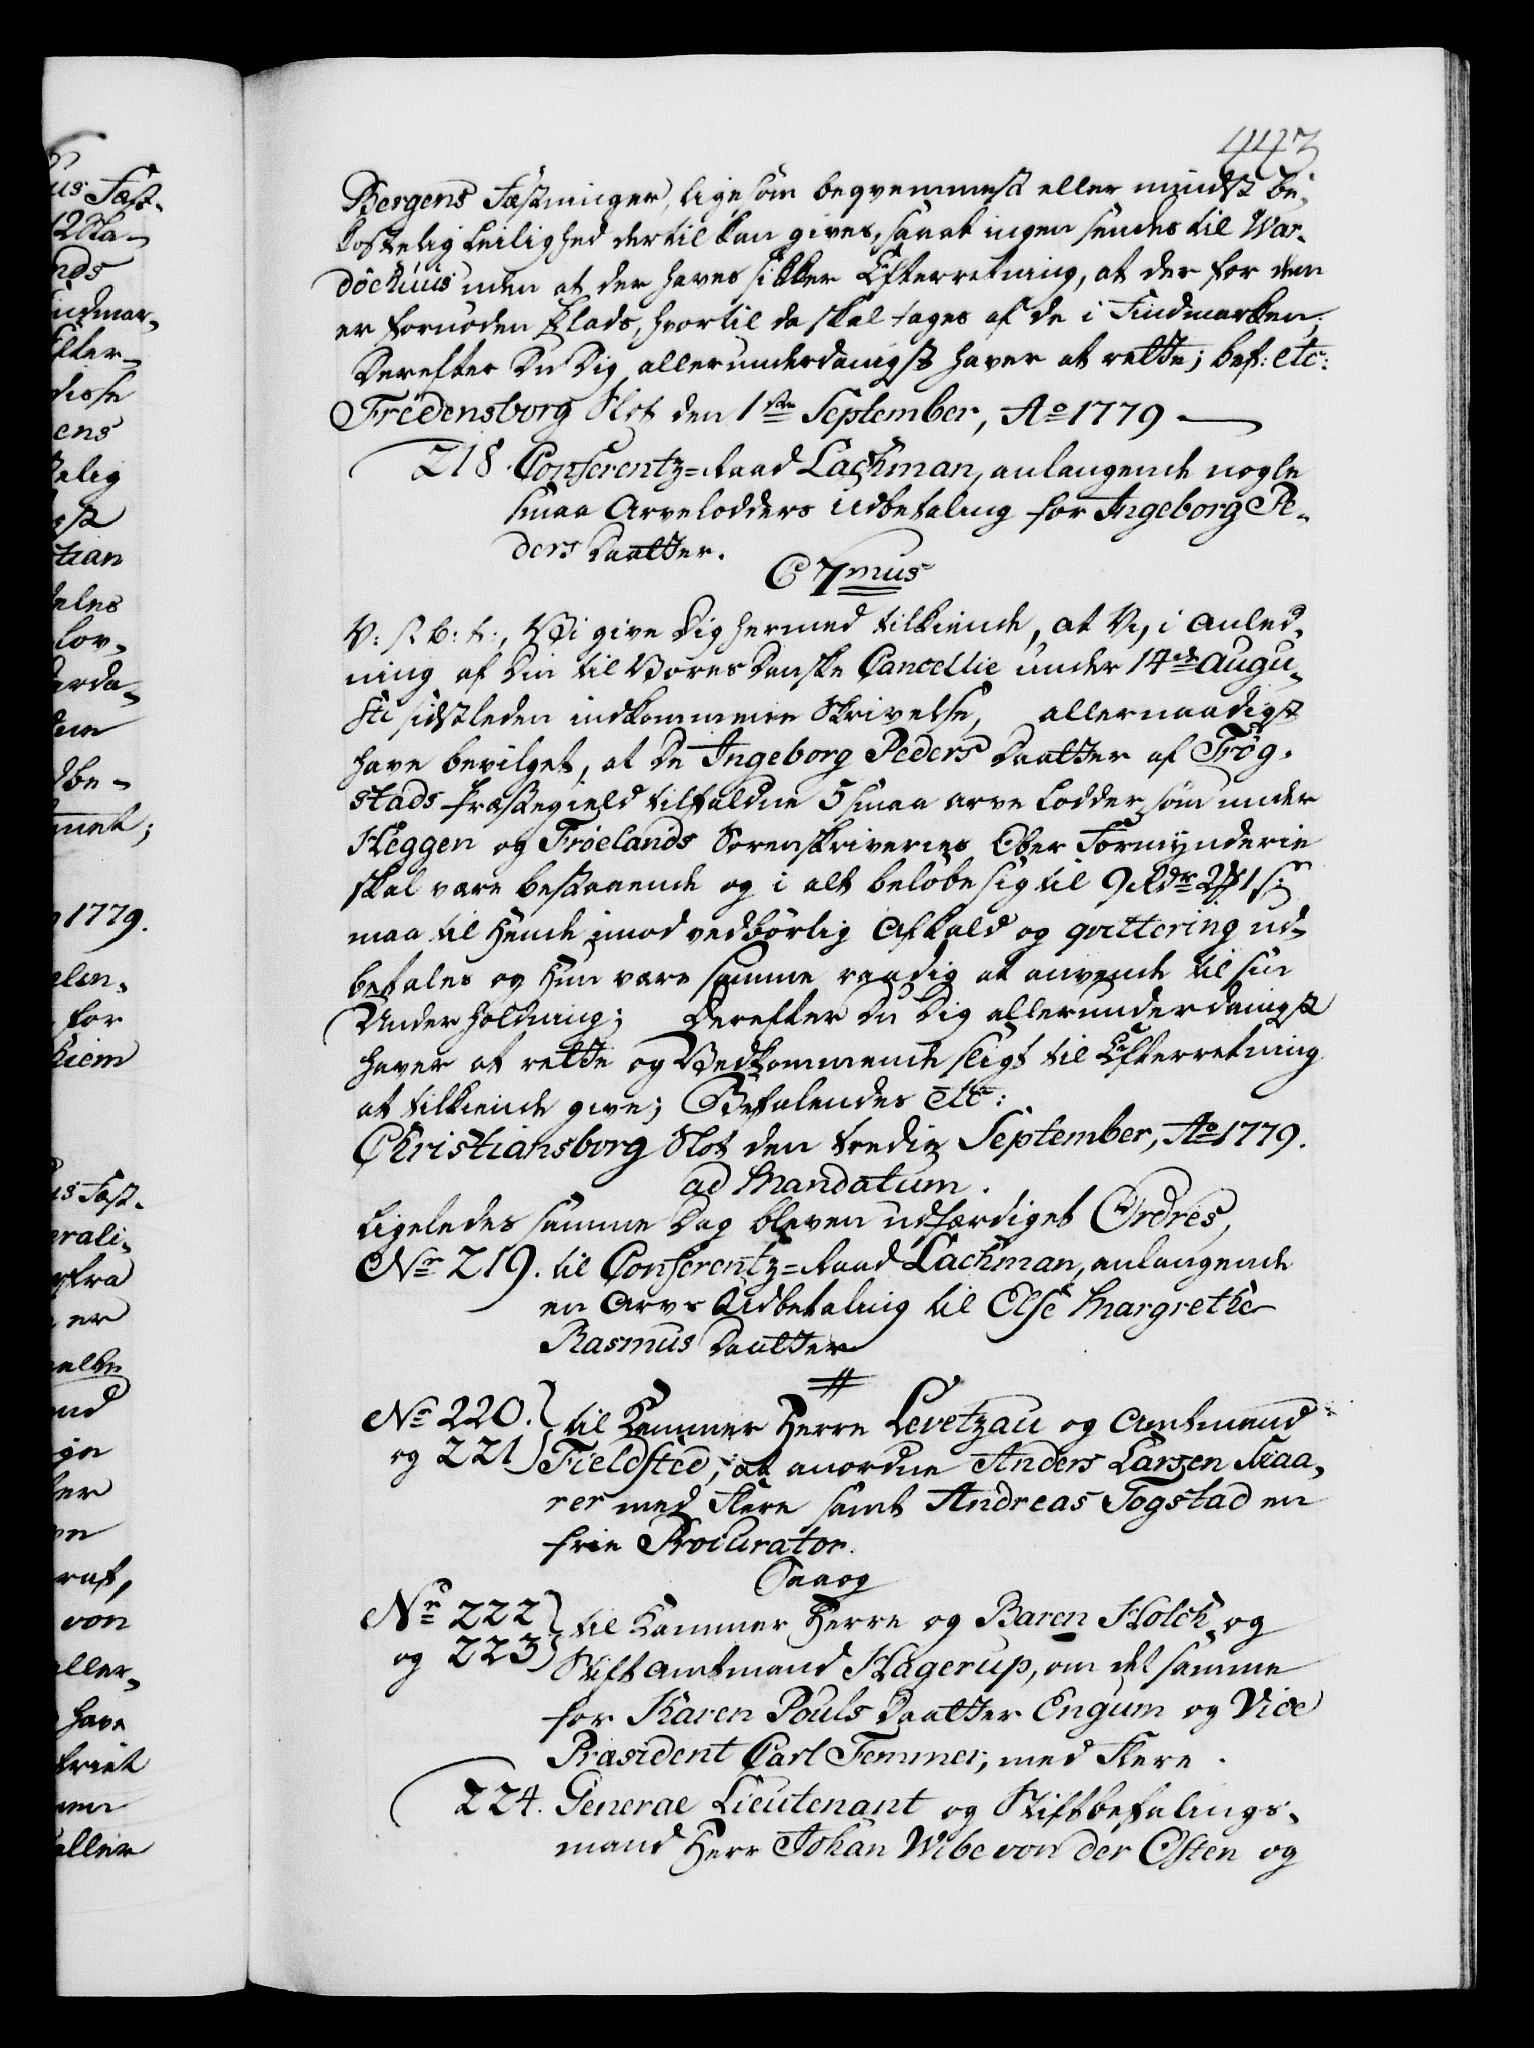 443
Bergens Fæstninger, ligesom beqvemmest eller mindst be-
kostelig Leilighed dertil kan gives, saa at ingen sendes til War-
döehuus uden at der haves sikker Efterretning, at der for dem
er fornøden Plads, hvortil da skal tages af de i Findmarken;
Derefter Du Dig allerunderdanigst haver at rette; bef: etc:
Fredensborg Slot den 1ste September, Ao 1779
218. Conferentz-Raad Lachman, anlangende nogle
smaa Arvelodders Udbetaling for Ingeborg Pe-
ders Daatter.
C 7mus
V: S: B: T:, Vi give Dig hermed tilkiende, at Vi, i Anled-
ning af Din til Vores Danske Cancellie under 14de Augu-
sti sidstleden indkommene Skrivelse, allernaadigst
have bevilget, at De Ingeborg Peders Daatter af Trög-
stads Præstegield tilfaldne 5 smaa Arve Lodder som under
Heggen og Frøelands Sorenskriveries Ober Formynderie
skal være bestaaende og i alt beløbe sig til 9 Rdr 2 1 s
maa til Hende imod vedbörlig Afkald og qvittering ud-
betales og Hun være samme raadig at anvende til sin
Underholdning; Derefter Du Dig allerunderdanigst
haver at rette og Vedkommende sligt til Efterretning
at tilkiende give; Befalendes etc:
Christiansborg Slot den tredie September, Ao 1779.
ad Mandatum.
Ligeledes samme Dag bleven udfærdiget Ordres,
Nr 219. til Conferentz-Raad Lachman, anlangende
en Arvs Udbetaling til Else Margrethe
Rasmus Daatter
Nr 220. til Kammer Herre Levetzau og Amtmand
og 221 Fieldsted, at anordne Anders Larsen Skaa-
rer med Flere samt Andreas Togstad en
frie Procurator.
Saa og
Nr 222 til Kammer Herre og Baron Holck, og
og 223 Stiftamtmand Hagerup, om det samme
for Karen Pouls Daatter Engum og Vice
Præsident Carl Femmer, med Flere.
224. General Lieutenant og Stiftbefalings-
mand Herr Johan Wibe von der Osten og